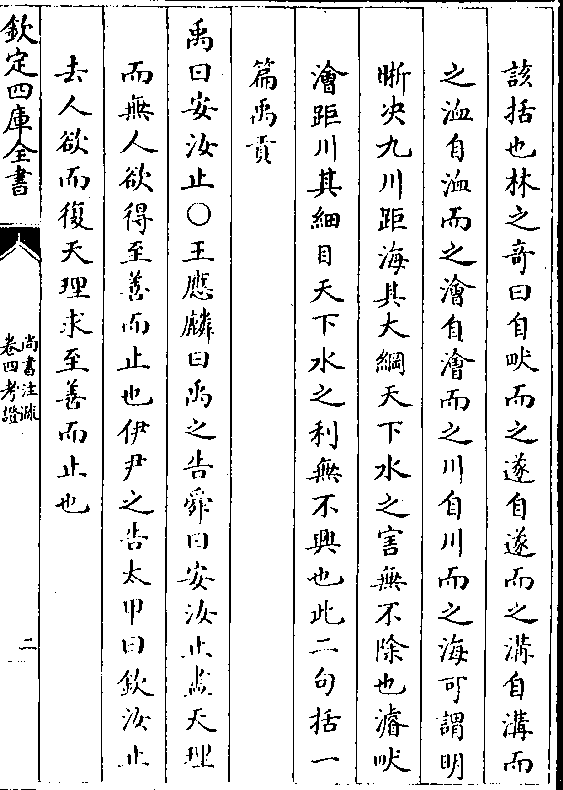 該括也林之奇曰自畎而之遂自遂而之溝自溝而
之洫自洫而之澮自澮而之川自川而之海可謂明
晰决九川距海其大綱天下水之害無不除也濬畎
澮距川其細目天下水之利無不興也此二句括一
篇禹貢
禹曰安汝止○王應麟曰禹之告舜曰安汝止盡天理
而無人欲得至善而止也伊尹之告太甲曰欽汝止
去人欲而復天理求至善而止也
欽定四庫全書
尚書注疏
卷四考證
二